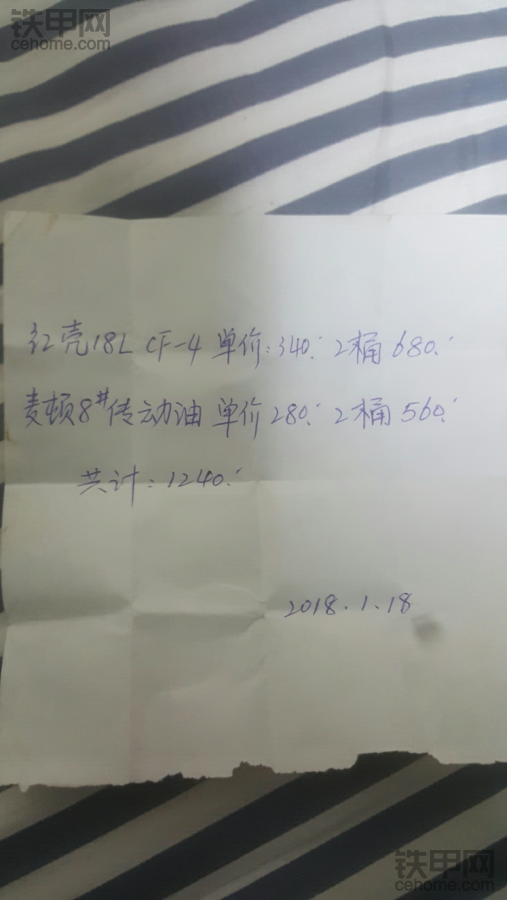 铁甲网
cehome.com
红壳18L CF-4 单价:340.· 2桶 680.·
麦顿8#传动油 单价280.· 2桶 560.·
共计:1240.·
2018.1.18
铁甲网
cehome.com